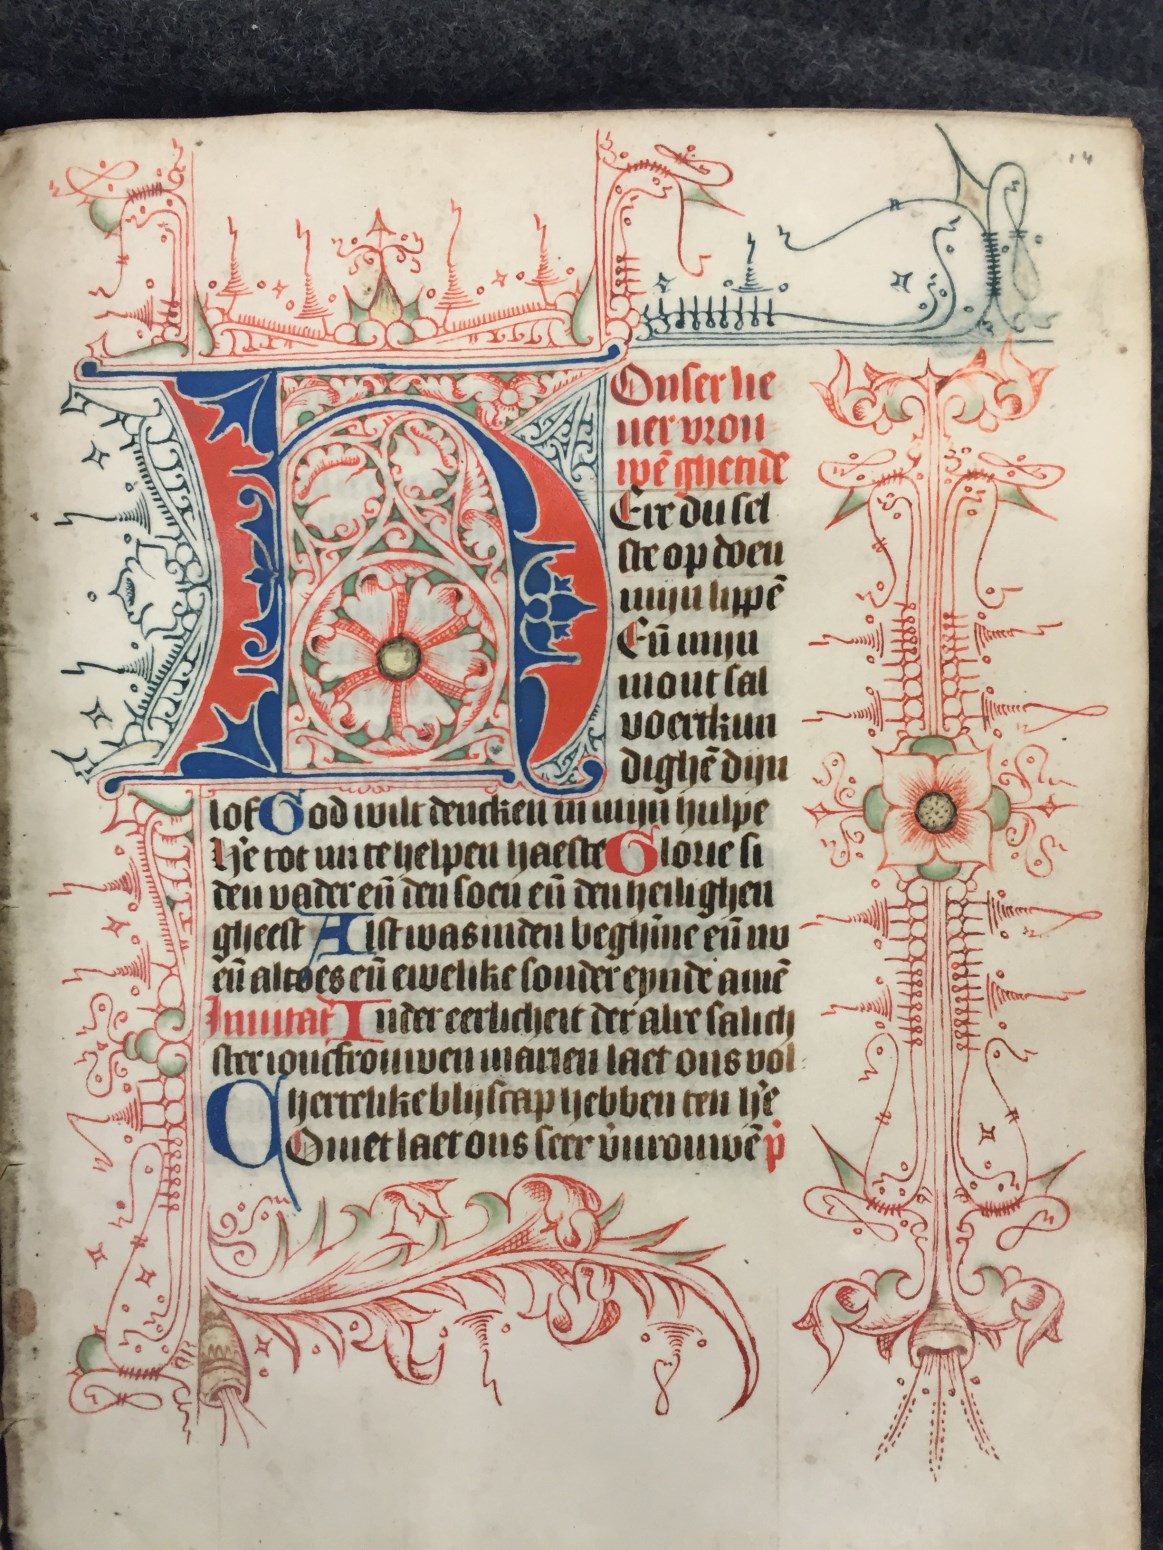 14
Onser lie
uer vrou
wē ghetide
HEre du sel
ste op doen
mijn lippē
Eñ mijn
mont sal
voertkun
dighē dijn
lof God wilt dencken in mijn hulpe
He᷎re tot mi te helpen haeste Glorie si
den vader eñ den soen eñ den heilighen
gheest Alst was inden beghinne eñ nu
eñ altoes eñ ewelike sonder eynde amē
Inuitat In der eerlicheit der alre salich
ster ioncfrouwen marien laet ons vol
Chertelike blijscap hebben ten he᷎re
Omet laet ons seer v̄vrouwē p̄